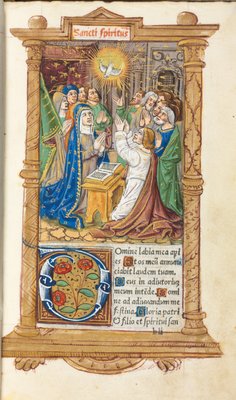 Sancti spiritus
Domine labia mea apī
es Et os meū annun
ciabit laudem tuam.
Deus in adiutoriū
meum intēde. Domi
ne ad adiuvandum me
festina. Gloria patri
et filio et spiritui san